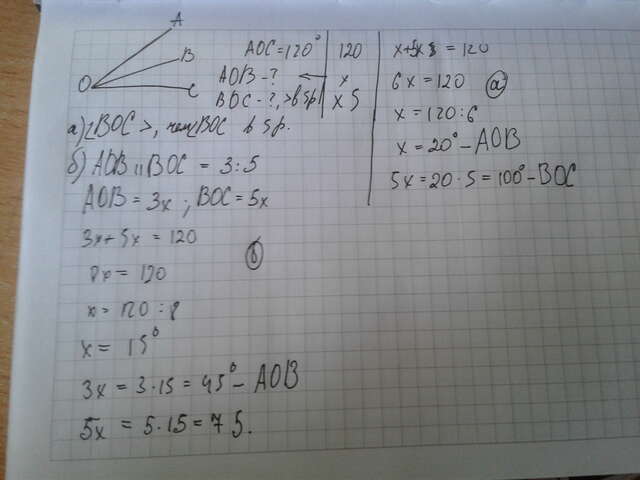 A
B
O
C
AOC = 120° | 120
AOB - ? ← x
BOC - ?, > в 5 р | x 5
а) ∠BOC >, чем ∠BOC в 5 р.
б) AOB и BOC = 3 : 5
AOB = 3x ; BOC = 5x
3x + 5x = 120
8x = 120
x = 120 : 8
x = 15°
3x = 3 · 15 = 45° - AOB
5x = 5 · 15 = 75.
б
x + 5x = 120
6x = 120 а
x = 120 : 6
x = 20° - AOB
5x = 20 · 5 = 100° - BOC